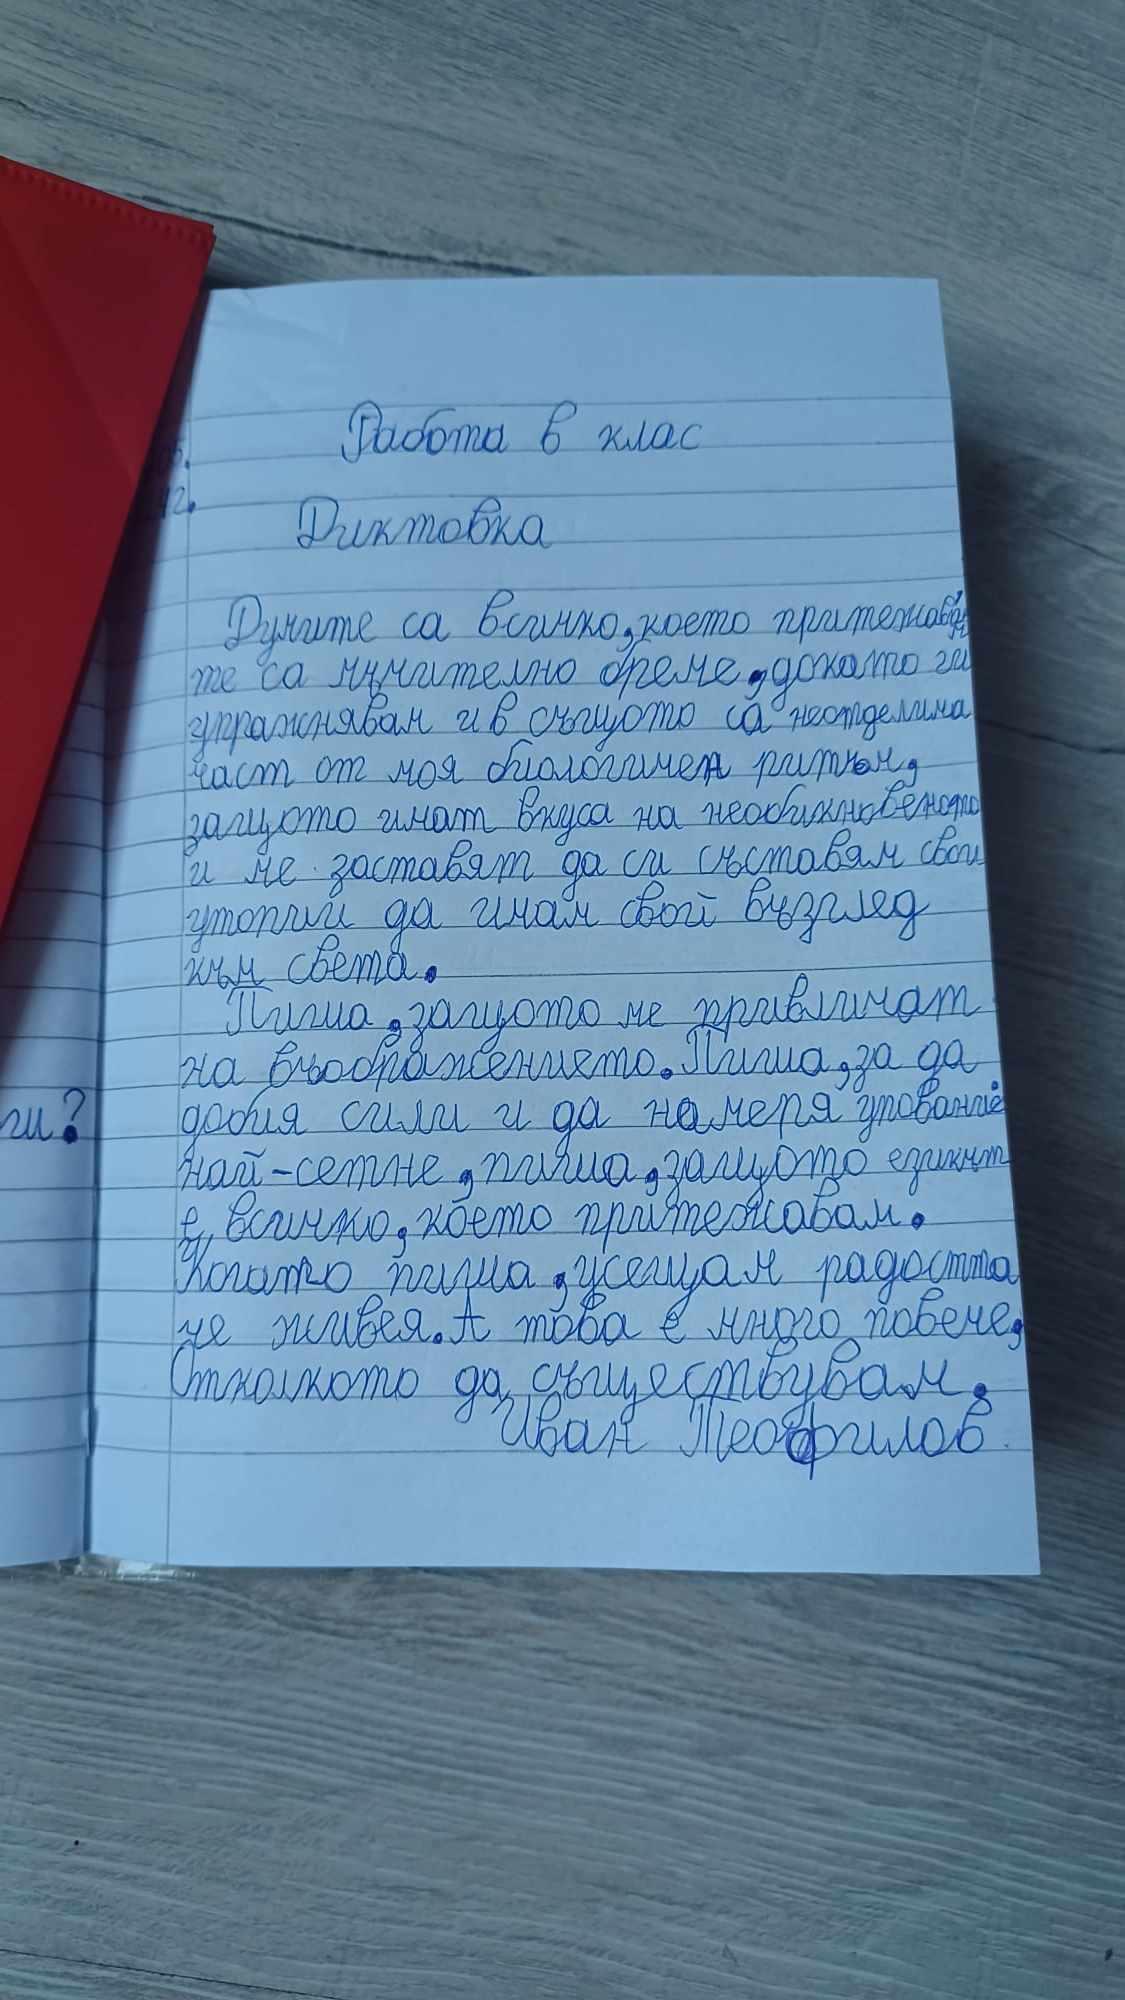 Работа в клас
Диктовка
Думите са всичко, което притежавам,
те са мъчително бреме, докато ги
упражнявам и в същото са неотделима
част от моя биологичен ритъм,
защото имат вкуса на необикновеното
и ме заставят да си съставям свои
утопии да имам свой възглед
към света.
Пиша, защото ме привличат
на въображението. Пиша, за да
добия сили и да намеря упование
най-сетне, пиша, защото езикът
е всичко, което притежавам.
Когато пиша, усещам радостта
че живея. А това е много повече,
Отколкото да съществувам.
Иван Теофилов
ги?
12.